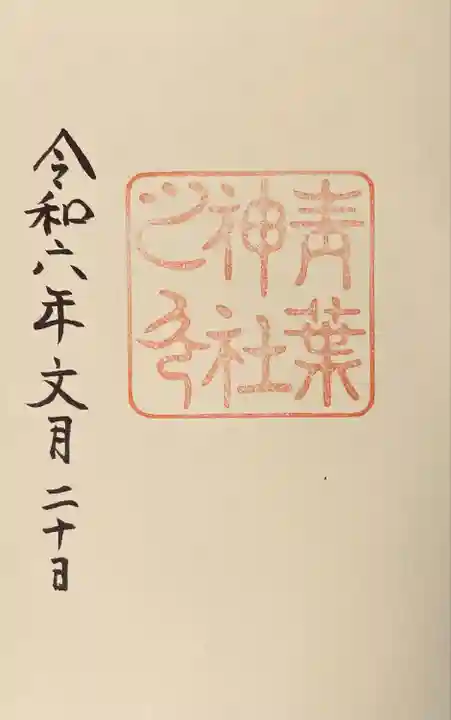 青葉
神社
之印
令和六年文月二十日